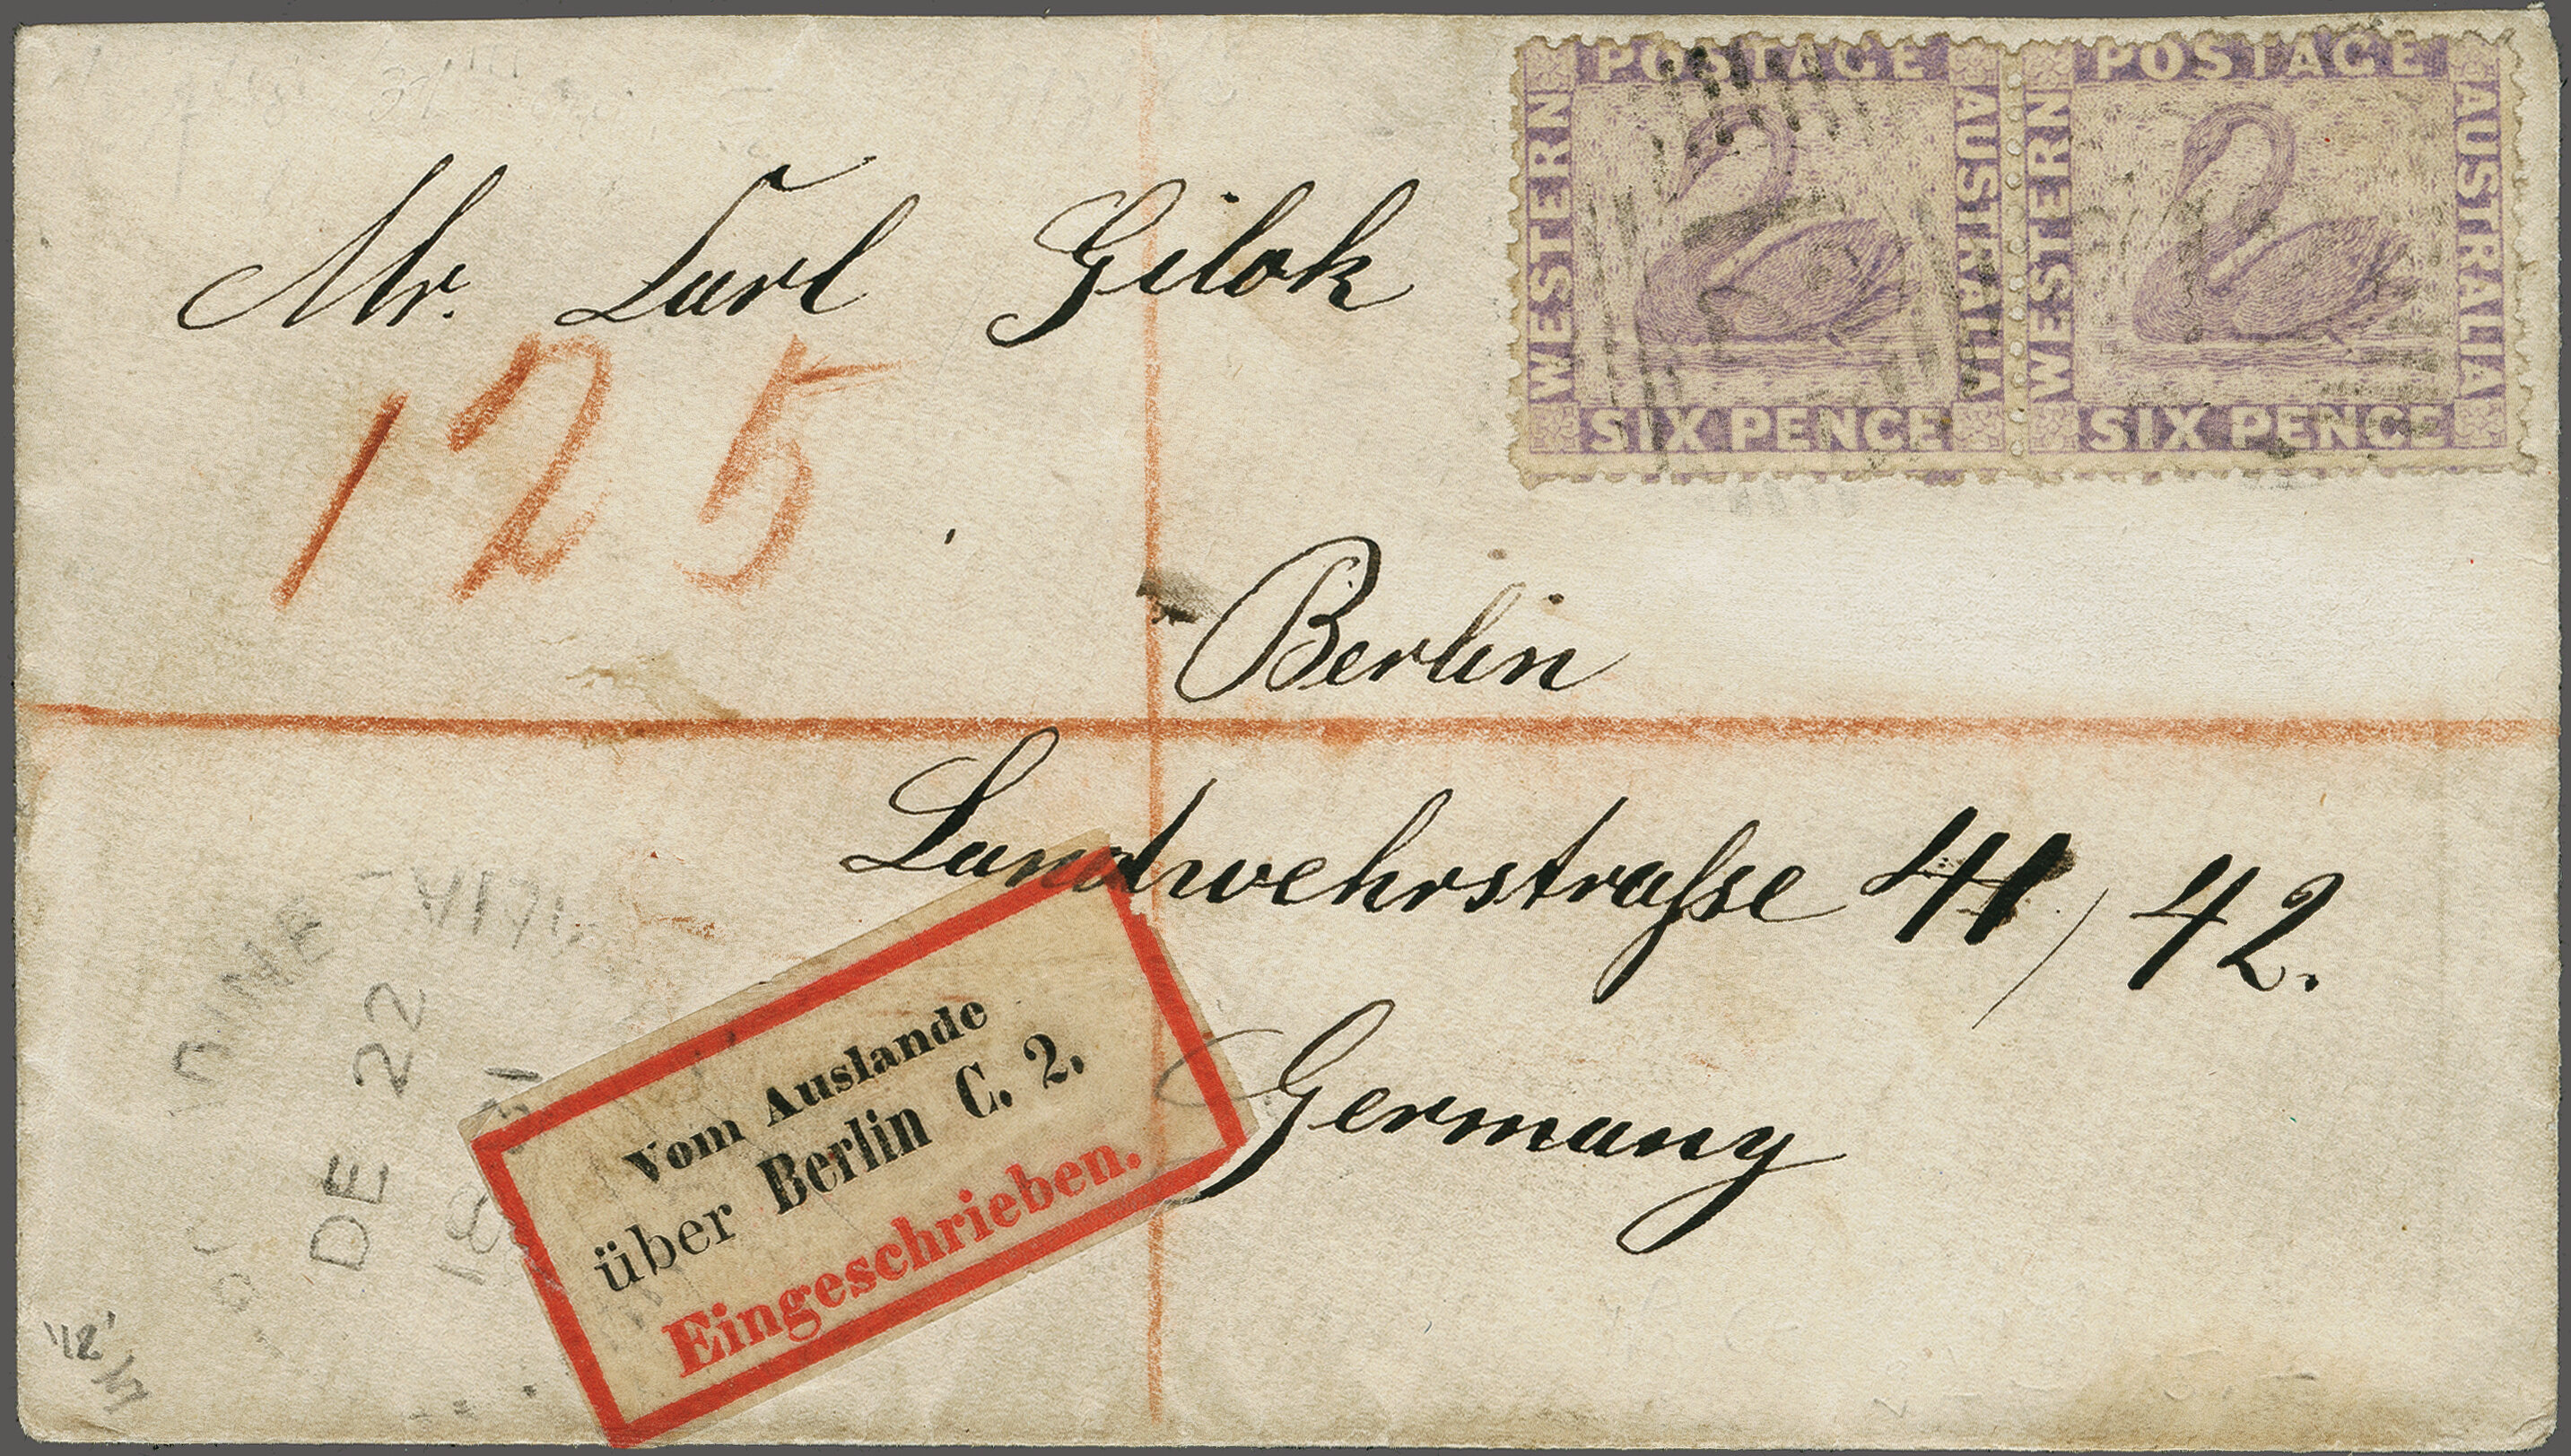 POSTAGE
WESTERN
AUSTRALIA
SIX PENCE
POSTAGE
WESTERN
AUSTRALIA
SIX PENCE
Mr. Carl Gilok
125
Berlin
Landwehrstraſse 41/42.
Germany
Vom Auslande
über Berlin C. 2.
Eingeschrieben.
DE 22